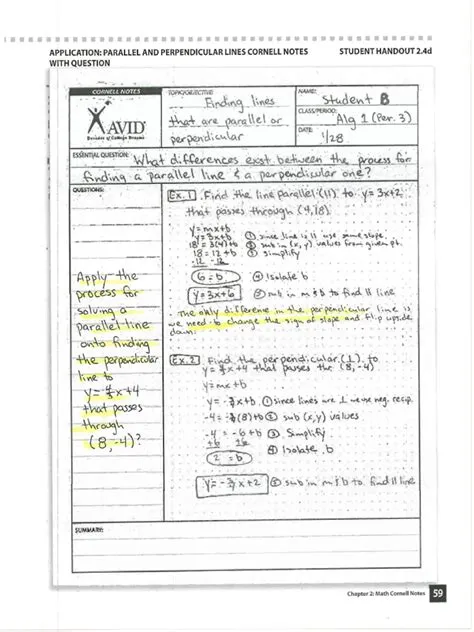 APPLICATION: PARALLEL AND PERPENDICULAR LINES CORNELL NOTES STUDENT HANDOUT 2.4d
WITH QUESTION
CORNELL NOTES
TOPIC/OBJECTIVE:
Finding lines
that are parallel or
perpendicular
NAME:
Student B
CLASS/PERIOD:
Alg 1 (Per. 3)
DATE:
1/28
AVID
Decades of College Dreams
ESSENTIAL QUESTION: What differences exist between the process for
finding a parallel line & a perpendicular one?
QUESTIONS:
Apply the
process for
solving a
parallel line
onto finding
the perpendicular
line to
y=4/3x+4
that passes
through
(8,-4)?
Ex. 1 Find the line parallel (11) to y=3x+2
that passes through (4,18)
y=mx+b
y=3x+b ① since line is 11 use same slope
18=3(4)+b ② sub in (x,y) values from given pt.
18=12+b ③ simplify
-12 -12
6=b ④ Isolate b
y=3x+6 ⑤ sub in m & b to find 11 line
The only difference in the perpendicular line is
we need to change the sign of slope and flip upside
down.
Ex. 2 Find the perpendicular (⊥) to
y=4/3x+4 that passes thru (8,-4)
y=mx+b
y=-3/4x+b ① since lines are ⊥ we use neg. recip.
-4=-3/4(8)+b ② sub (x,y) values
-4=-6+b ③ Simplify
④ Isolate b
2=b
y=-3/4x+2 ⑤ sub in m & b to find 11 line
SUMMARY:
Chapter 2: Math Cornell Notes 59